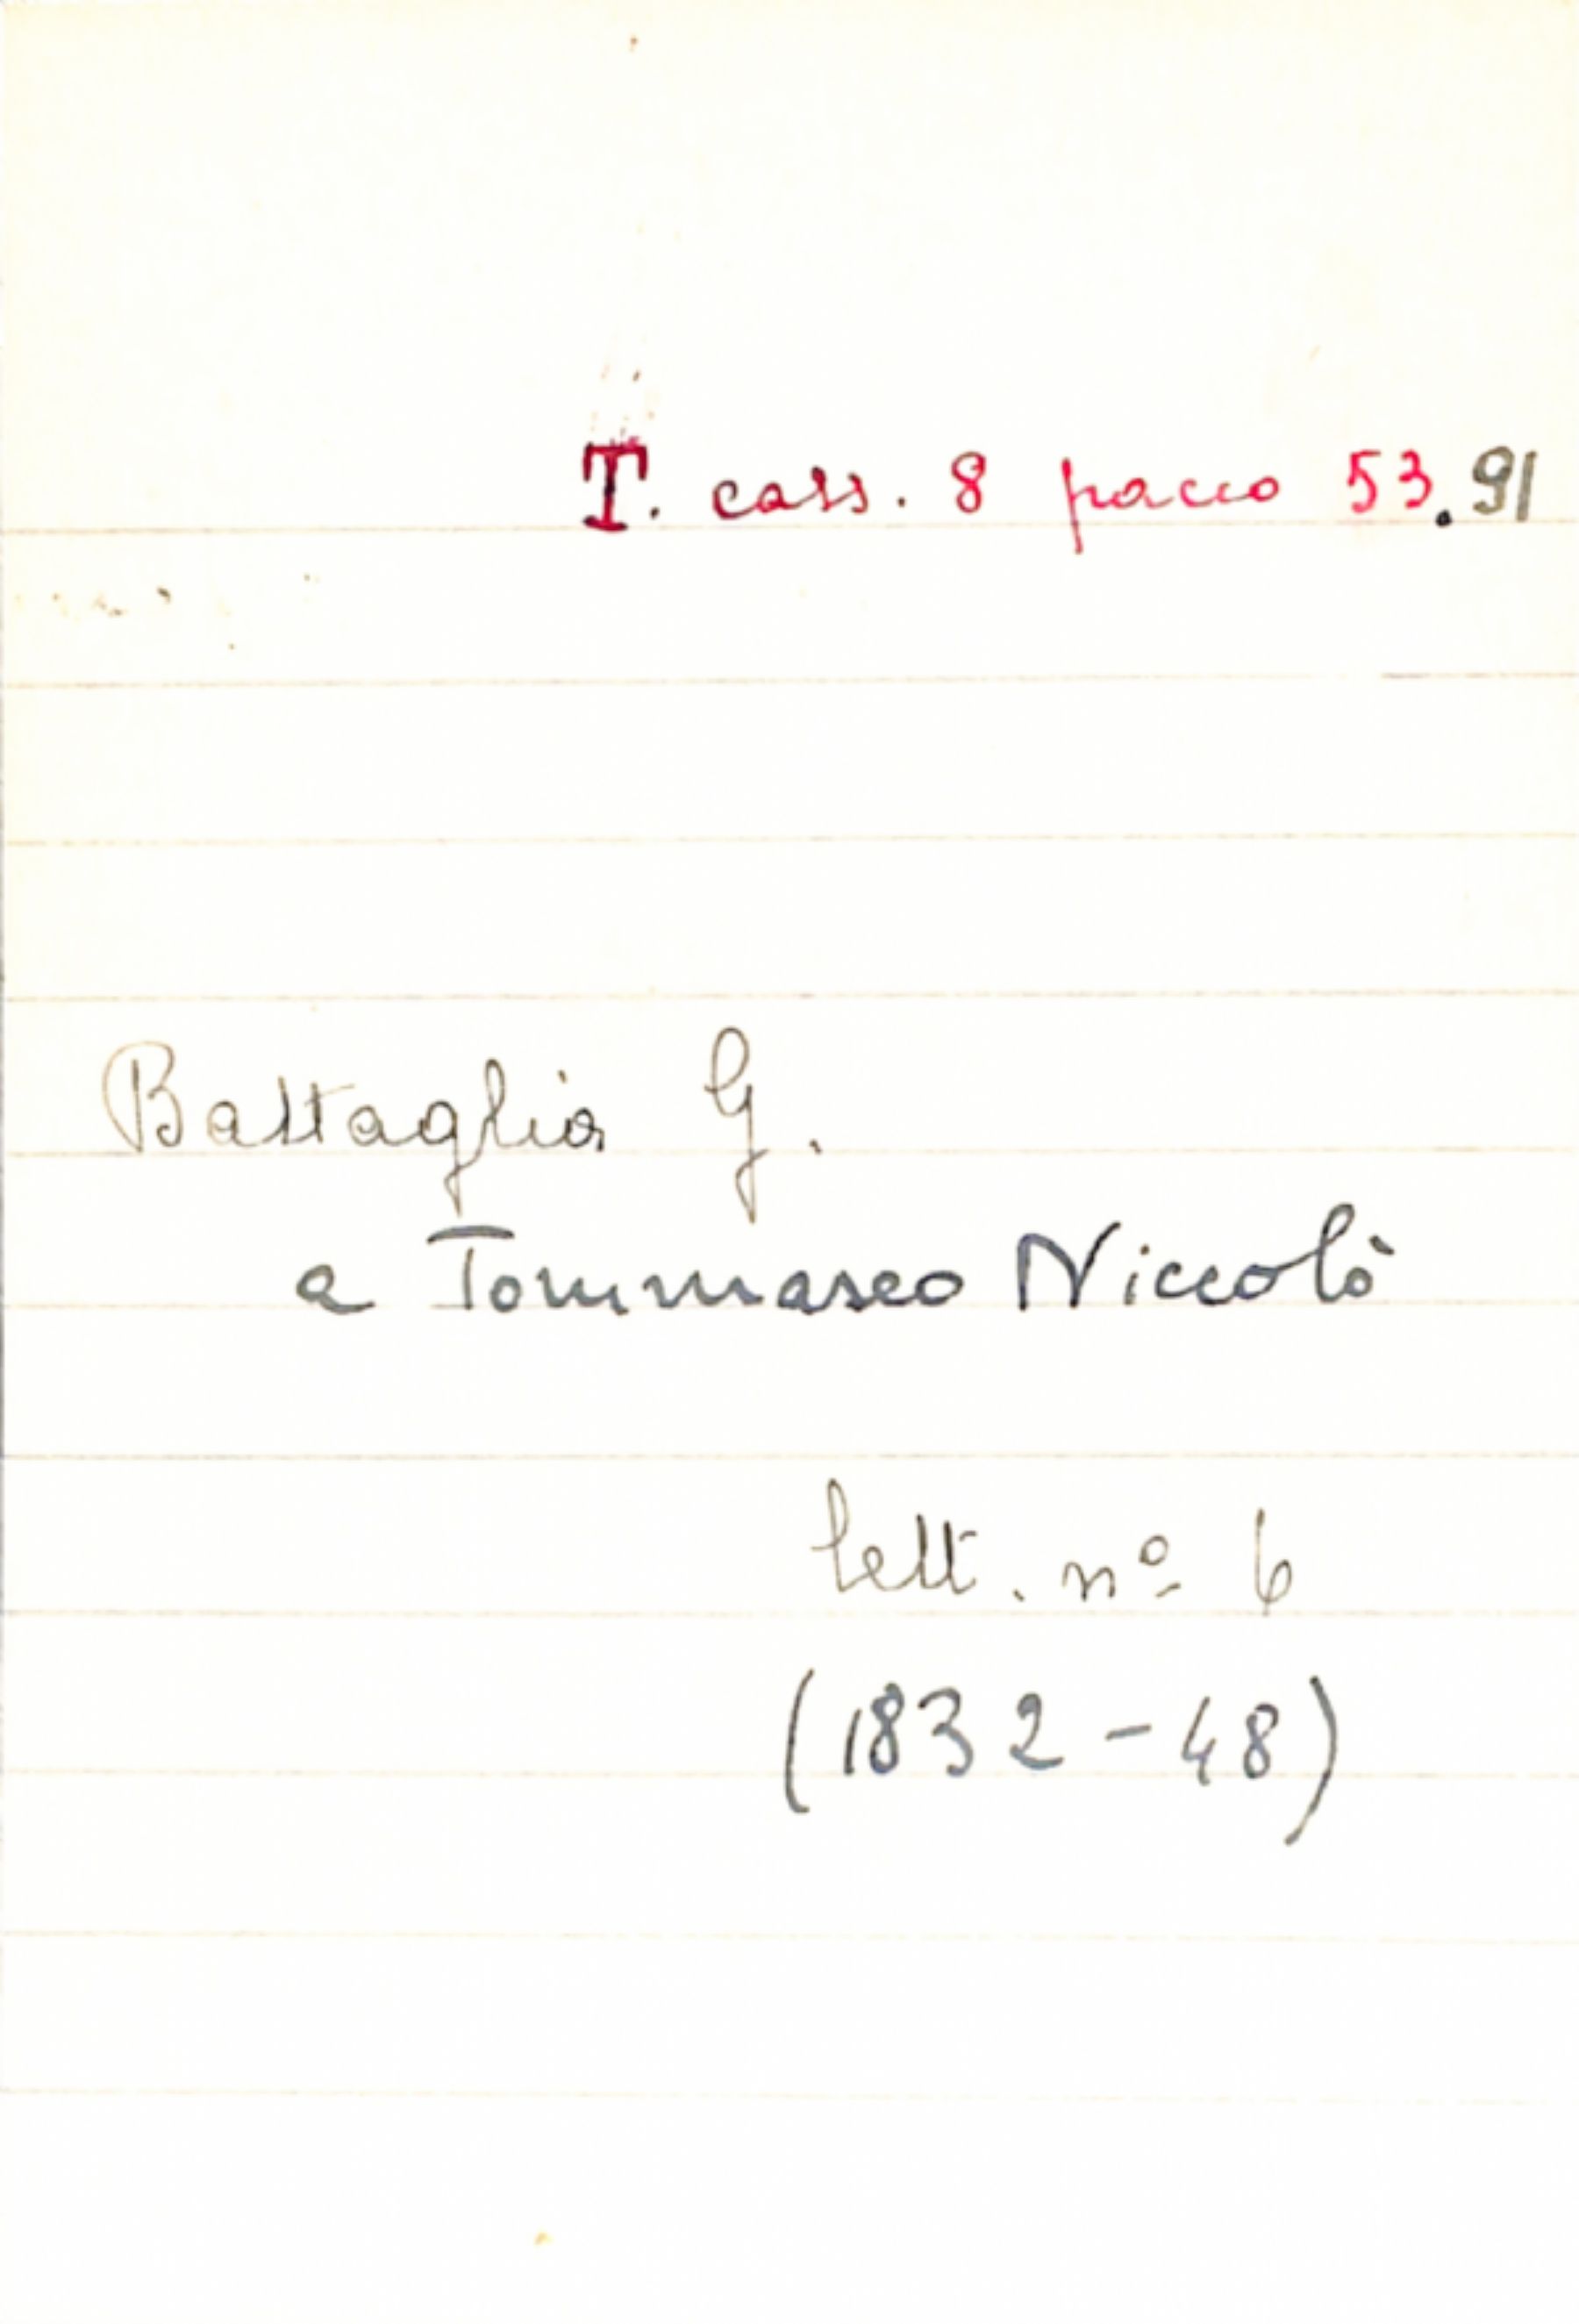 T. cass. 8 pacco 53.91
Battaglia G.
a Tommaseo Niccolò
lett. nº 6
(1832-48)